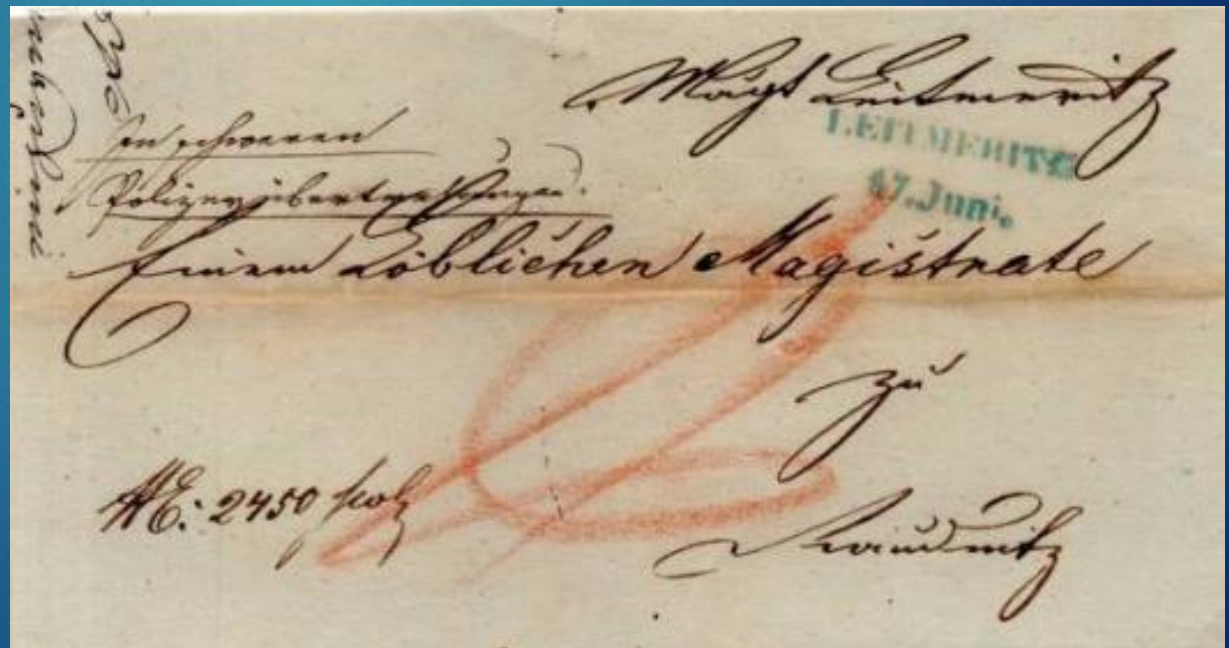 Magt Leitmeritz
LEITMERITZ
17. Juni.
In schweren
Polizeyübertretungen.
Einem Löblichen Magistrate
zu
Raudnitz
NE: 2450 polz